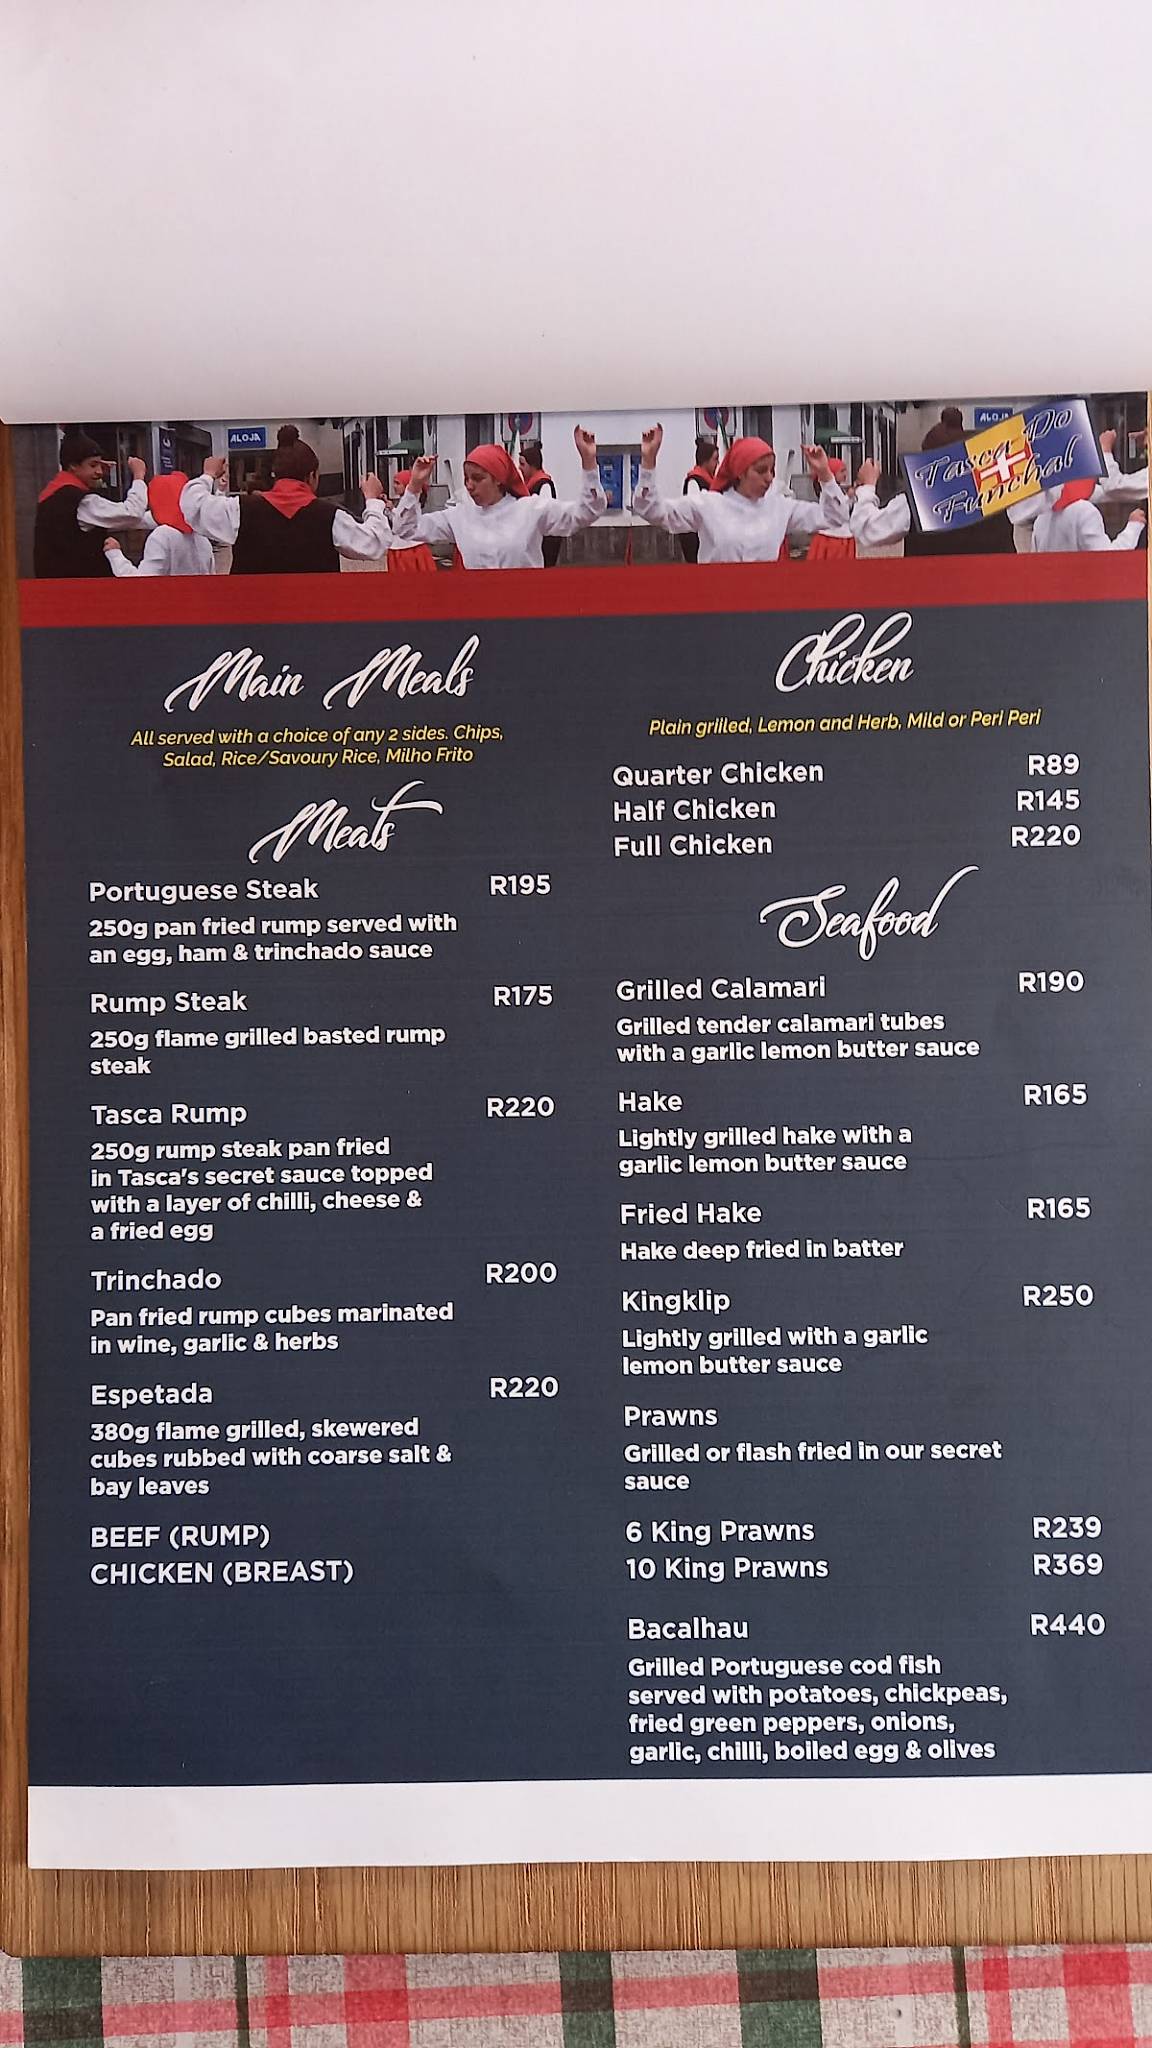 ALOJA
ALOJA
Tasca Do
Funchal
Main Meals
All served with a choice of any 2 sides. Chips,
Salad, Rice/Savoury Rice, Milho Frito
Meats
Portuguese Steak R195
250g pan fried rump served with
an egg, ham & trinchado sauce
Rump Steak R175
250g flame grilled basted rump
steak
Tasca Rump R220
250g rump steak pan fried
in Tasca's secret sauce topped
with a layer of chilli, cheese &
a fried egg
Trinchado R200
Pan fried rump cubes marinated
in wine, garlic & herbs
Espetada R220
380g flame grilled, skewered
cubes rubbed with coarse salt &
bay leaves
BEEF (RUMP)
CHICKEN (BREAST)
Chicken
Plain grilled, Lemon and Herb, Mild or Peri Peri
Quarter Chicken R89
Half Chicken R145
Full Chicken R220
Seafood
Grilled Calamari R190
Grilled tender calamari tubes
with a garlic lemon butter sauce
Hake R165
Lightly grilled hake with a
garlic lemon butter sauce
Fried Hake R165
Hake deep fried in batter
Kingklip R250
Lightly grilled with a garlic
lemon butter sauce
Prawns
Grilled or flash fried in our secret
sauce
6 King Prawns R239
10 King Prawns R369
Bacalhau R440
Grilled Portuguese cod fish
served with potatoes, chickpeas,
fried green peppers, onions,
garlic, chilli, boiled egg & olives